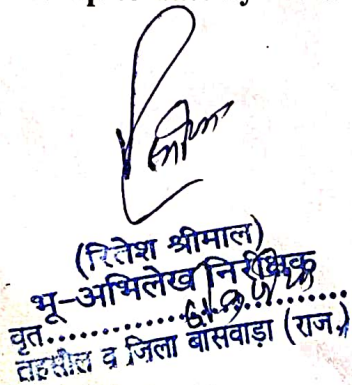 (रितेश श्रीमाल)
भू-अभिलेख निरीक्षक
वृत..................
तहसील व जिला बांसवाड़ा (राज.)